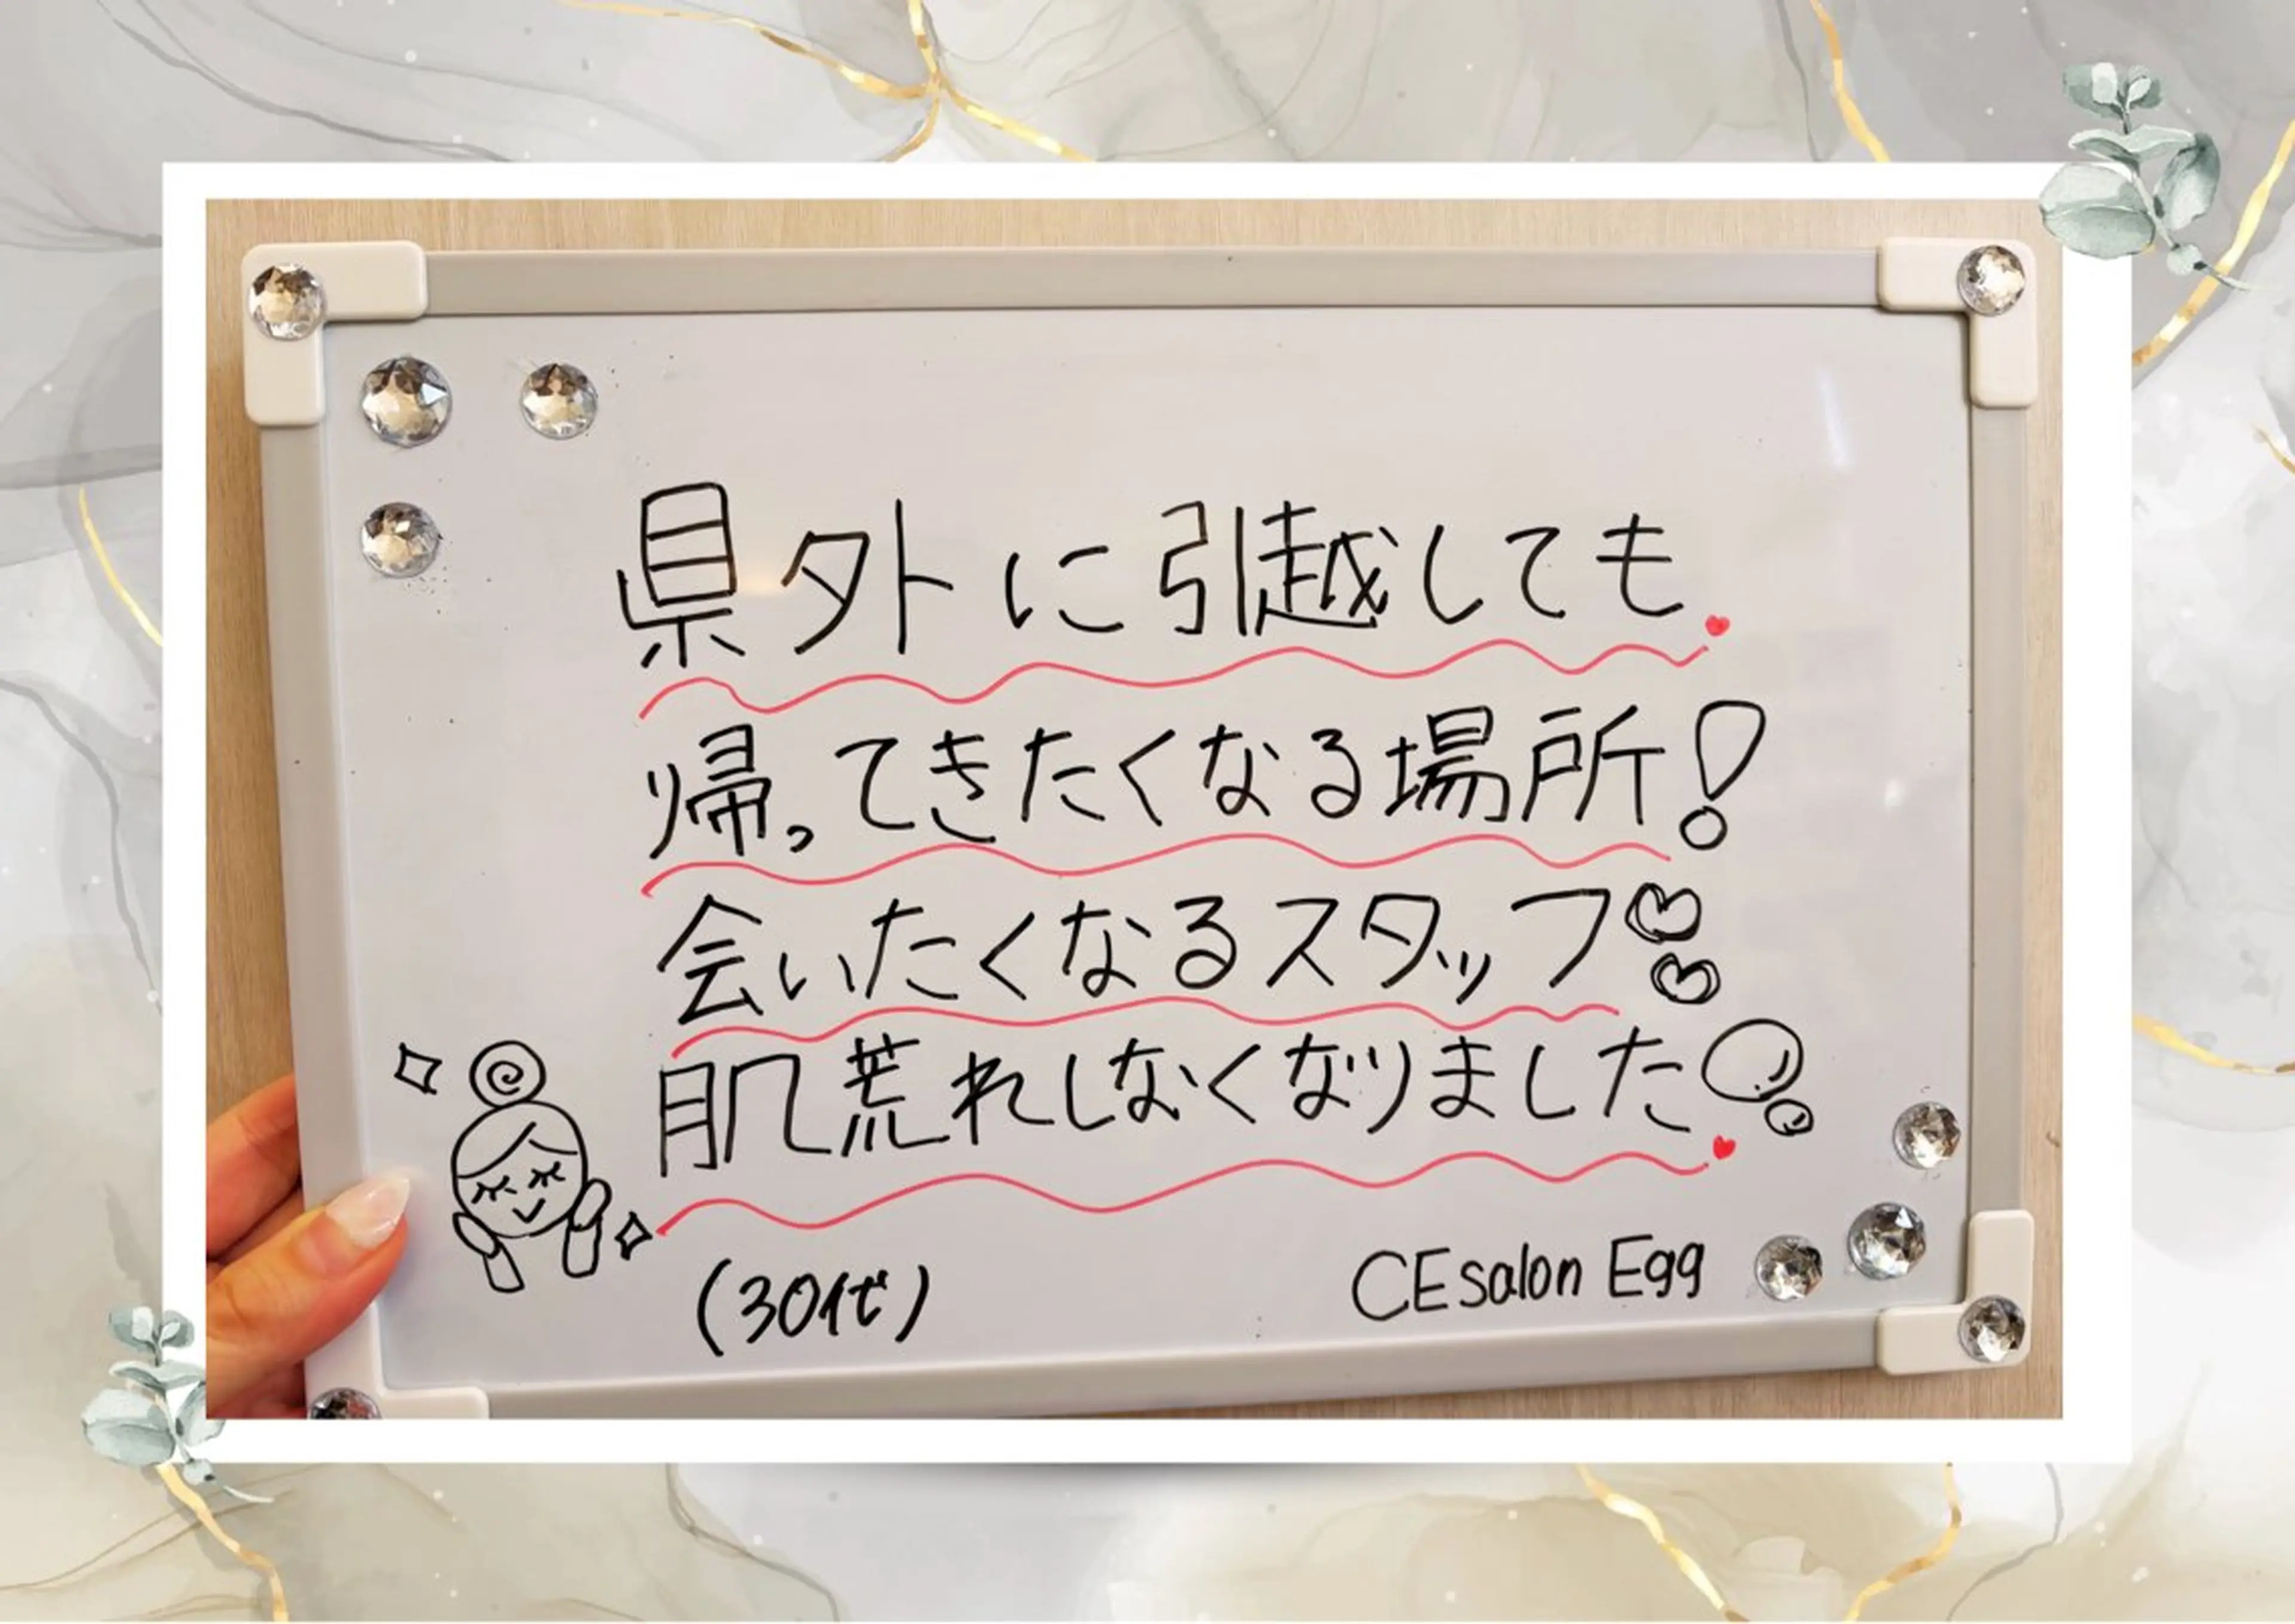 県外に引越しても
帰ってきたくなる場所!
会いたくなるスタッフ
肌荒れしなくなりました
(30代)
CEsalon Egg